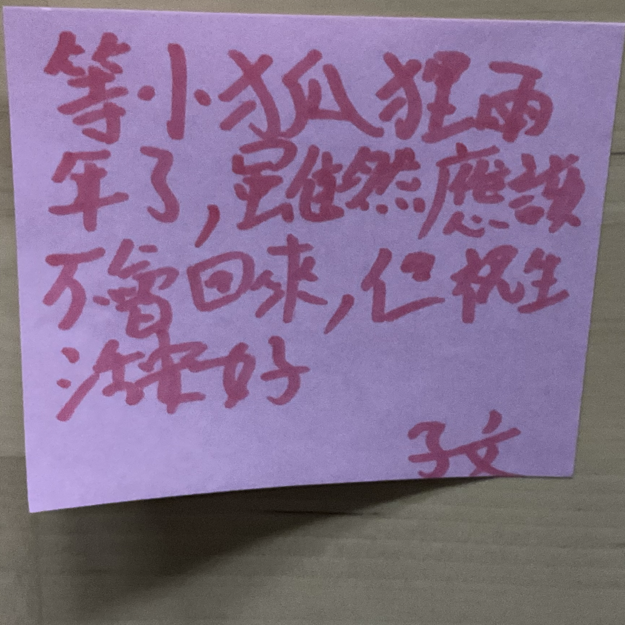 等小狐狸兩
年了,雖然應該
不會回來,但祝生
活安好
子文